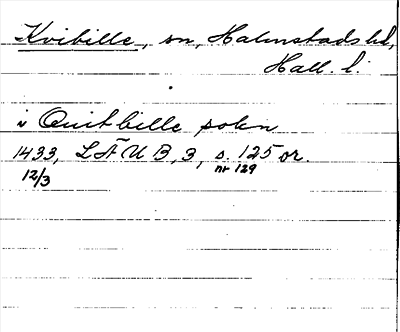 Kvibille, sn, Halmstads hd,
Hall. l.
i Quitbille sokn
1433, LÄUB, 3, s. 125 or.
12/3 nr 129